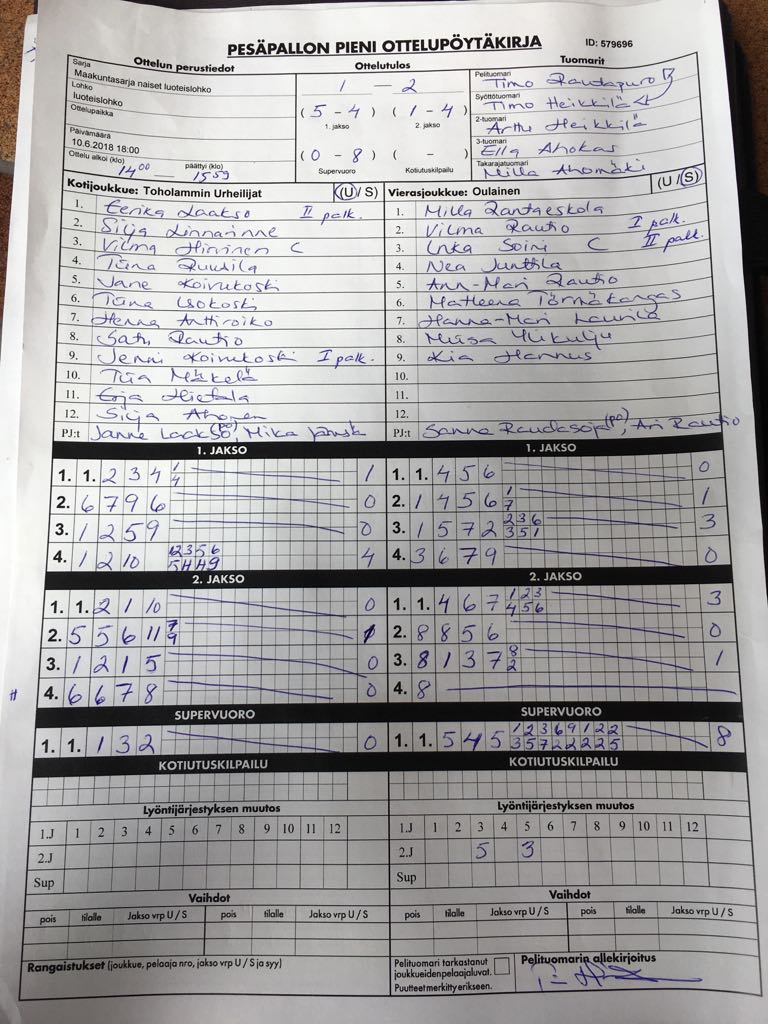 PESÄPALLON PIENI OTTELUPÖYTÄKIRJA ID: 579696
Ottelun perustiedot Ottelutulos Tuomarit
Sarja
Maakuntasarja naiset luoteislohko
Lohko
luoteislohko
Ottelupaikka
Päivämäärä
10.6.2018 18:00
Ottelu alkoi (klo) päättyi (klo)
14 00 — 15 59
1 — 2
(5 - 4) (1 - 4)
1. jakso 2. jakso
(0 - 8) ( - )
Supervuoro Kotiutuskilpailu
Pelituomari
Timo Raudapuro
Syöttötuomari
Timo Heikkilä
2-tuomari
Arttu Heikkilä
3-tuomari
Ella Ahokas
Takarajatuomari
Milla Ahomäki
Kotijoukkue: Toholammin Urheilijat (U / S)
1. Eerika Laakso II palk.
2. Silja Linnarinne
3. Vilma Hirvinen C
4. Tiina Ruudila
5. Jane Koivukoski
6. Tiina Isokoski
7. Henna Anttiroiko
8. Satu Rautio
9. Jenni Koivukoski I palk.
10. Tiia Mäkelä
11. Erja Hietala
12. Silja Ahonen
PJ:t Janne Laakso (po), Mika
Vierasjoukkue: Oulainen (U / S)
1. Milla Rantaeskola
2. Vilma Rautio I palk.
3. Inka Soini C II palk.
4. Nea Junttila
5. Ann-Mari Rautio
6. Matleena Törmäkangas
7. Hanna-Mari Laurila
8. Miisa Ylikulju
9. Kia Hannus
10.
11.
12.
PJ:t Sanna Raudasoja (po), Ari Rautio
1. JAKSO
1. 1. 2 3 4 1 1
4
2. 6 7 9 6 0
3. 1 2 5 9 0
4. 1 2 10 12 3 5 6 4
5 4 4 9
1. JAKSO
1. 1. 4 5 6 0
2. 1 4 5 6 1 1
7
3. 1 5 7 2 2 3 6 3
3 5 1
4. 3 6 7 9 0
2. JAKSO
1. 1. 2 1 10 0
2. 5 5 6 11 7 1
9
3. 1 2 1 5 0
4. 6 6 7 8 0
2. JAKSO
1. 1. 4 6 7 1 2 3 3
4 5 6
2. 8 8 5 6 0
3. 8 1 3 7 8 1
2
4. 8
SUPERVUORO
1. 1. 1 3 2 0
SUPERVUORO
1. 1. 5 4 5 1 2 3 6 9 1 2 2 8
3 5 7 2 2 2 2 5
KOTIUTUSKILPAILU
KOTIUTUSKILPAILU
Lyöntijärjestyksen muutos
1.J 1 2 3 4 5 6 7 8 9 10 11 12
2.J
Sup
Lyöntijärjestyksen muutos
1.J 1 2 3 4 5 6 7 8 9 10 11 12
2.J 5 3
Sup
Vaihdot
pois tilalle Jakso vrp U / S pois tilalle Jakso vrp U / S
Vaihdot
pois tilalle Jakso vrp U / S pois tilalle Jakso vrp U / S
Rangaistukset (joukkue, pelaaja nro, jakso vrp U / S ja syy)
Pelituomari tarkastanut
joukkueidenpelaajaluvat.
Puutteet merkitty erikseen.
Pelituomarin allekirjoitus